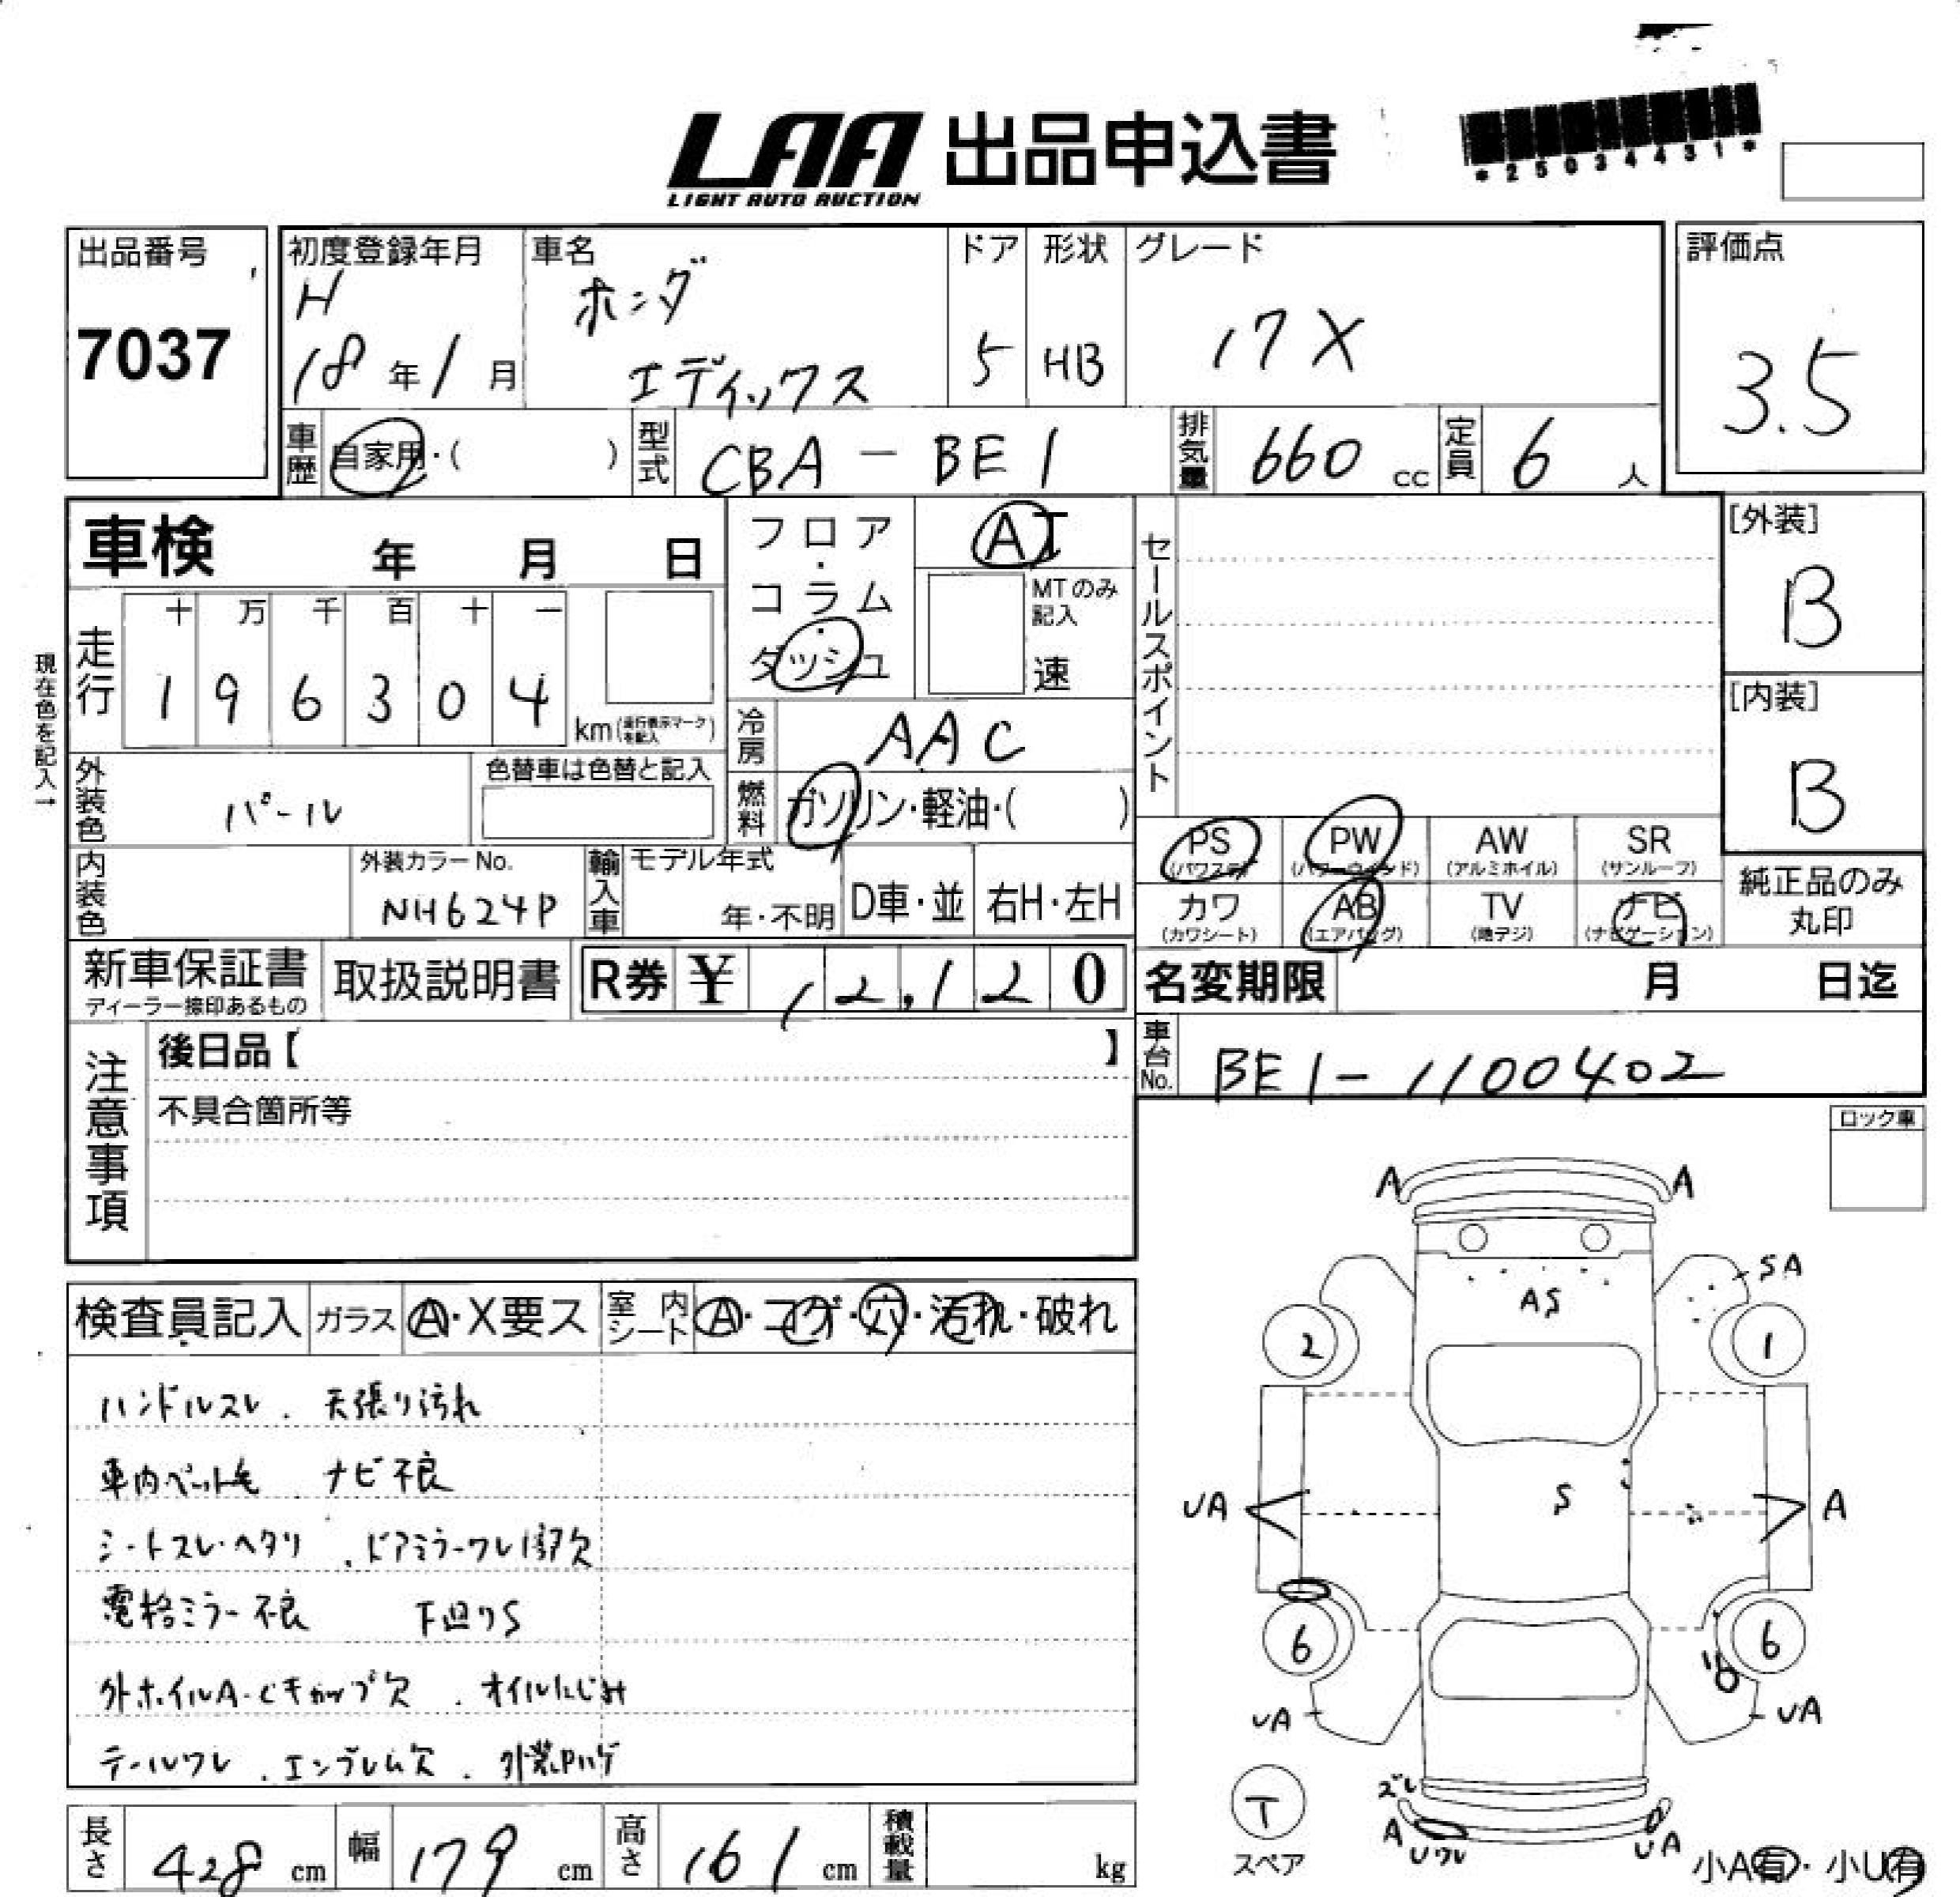 LAA 出品申込書
LIGHT AUTO AUCTION
*25034431*
出品番号
7037
初度登録年月
H
18年1月
車名
ホンダ
エディックス
ドア
5
形状
HB
グレード
17X
評価点
3.5
車歴
自家用・( )
型式
CBA-BE1
排気量
660 cc
定員
6 人
車検 年 月 日
フロア・コラム・ダッシュ
AT
MTのみ記入
速
セールスポイント
[外装]
B
[内装]
B
現在色を記入→
走行
十 万 千 百 十 一
1 9 6 3 0 4
km(走行表示マークを記入)
冷房
AAC
外装色
パール
色替車は色替と記入
燃料
ガソリン・軽油・( )
内装色
外装カラーNo.
NH624P
輸入車
モデル年式
年・不明
D車・並
右H・左H
PS
(パワステ)
PW
(パワーウインド)
AW
(アルミホイル)
SR
(サンルーフ)
カワ
(カワシート)
AB
(エアバッグ)
TV
(地デジ)
ナビ
(ナビゲーション)
純正品のみ
丸印
新車保証書
ディーラー捺印あるもの
取扱説明書
R券 ¥ 12,120
名変期限 月 日迄
車台No.
BE1-1100402
注意事項
後日品【 】
不具合箇所等
ロック車
検査員記入
ガラス
A・X要ス
室内シート
A・コゲ・穴・汚れ・破れ
ハンドルスレ . 天張り汚れ
車内ペット毛 . ナビ不良
シートスレ・ヘタリ . ドアミラーワレ部欠
電格ミラー不良 下廻りS
外ホイルA・Cキャップ欠 . オイルにじみ
テールワレ . エンブレム欠 . 外装Pハゲ
A
A
SA
AS
2
1
S
UA
A
6
6
UA
UA
ズレ
A
Uワレ
UA
T
スペア
小A有・小U有
長さ
428 cm
幅
179 cm
高さ
161 cm
積載量
kg